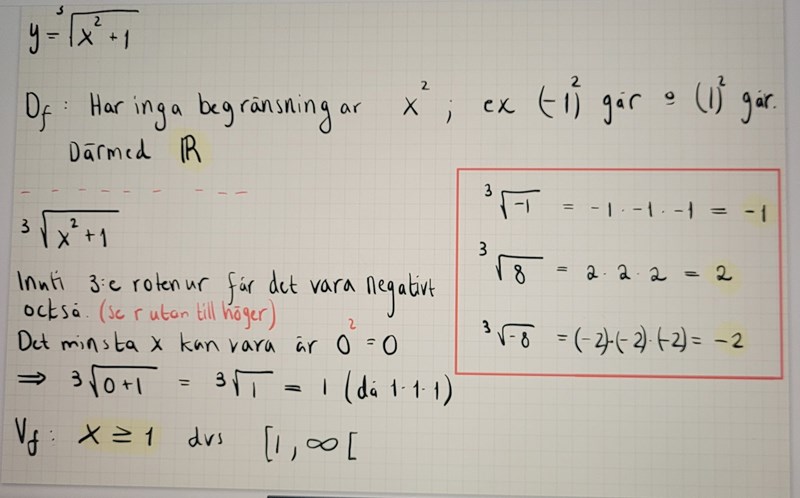 y = ∛(x² + 1)
Df : Har inga begränsningar x² ; ex (-1)² går o (1)² går.
Därmed ℝ
∛(x² + 1)
Inuti 3:e roten ur får det vara negativt
också. (se rutan till höger)
Det minsta x kan vara är 0² = 0
⇒ ∛(0+1) = ∛1 = 1 (då 1·1·1)
Vf : x ≥ 1 dvs [1, ∞[
∛-1 = -1 · -1 · -1 = -1
∛8 = 2 · 2 · 2 = 2
∛-8 = (-2)·(-2)·(-2) = -2